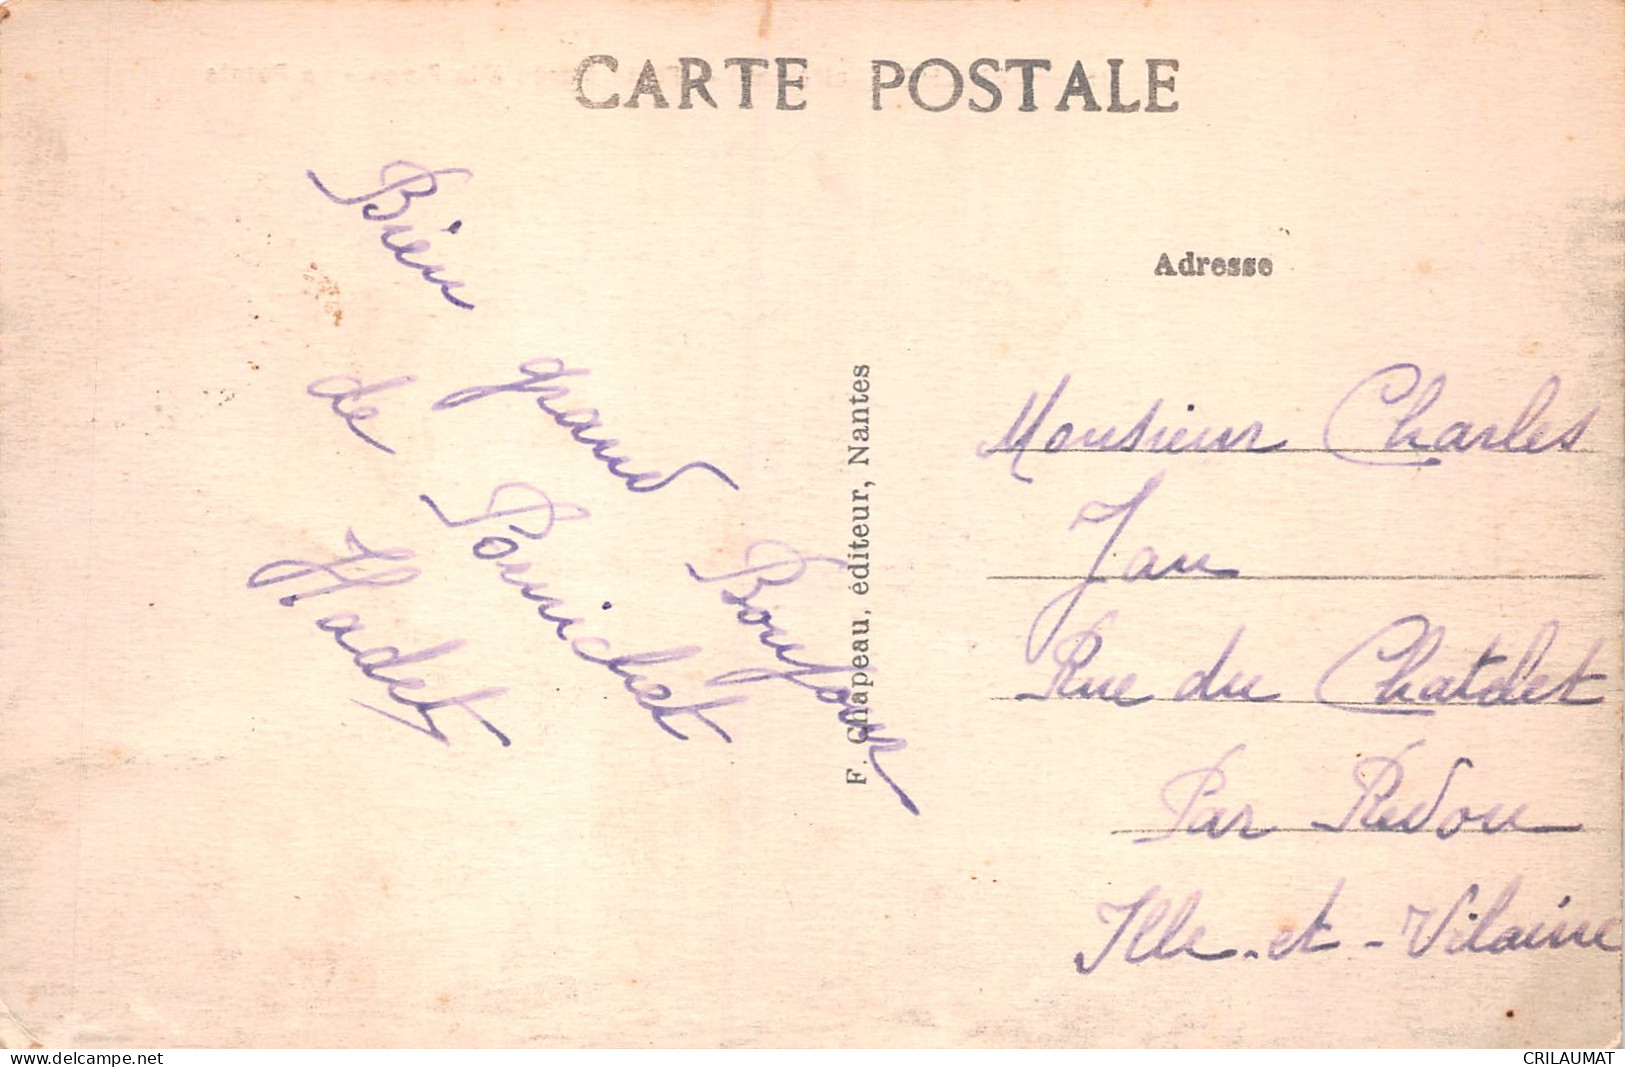 CARTE POSTALE
Bien grand Bonjour
de Pornichet
Hadet
F. Chapeau, éditeur, Nantes
Adresse
Monsieur Charles
Jan
Rue du Chatelet
Par Redon
Ille-et-Vilaine
www.delcampe.net
CRILAUMAT